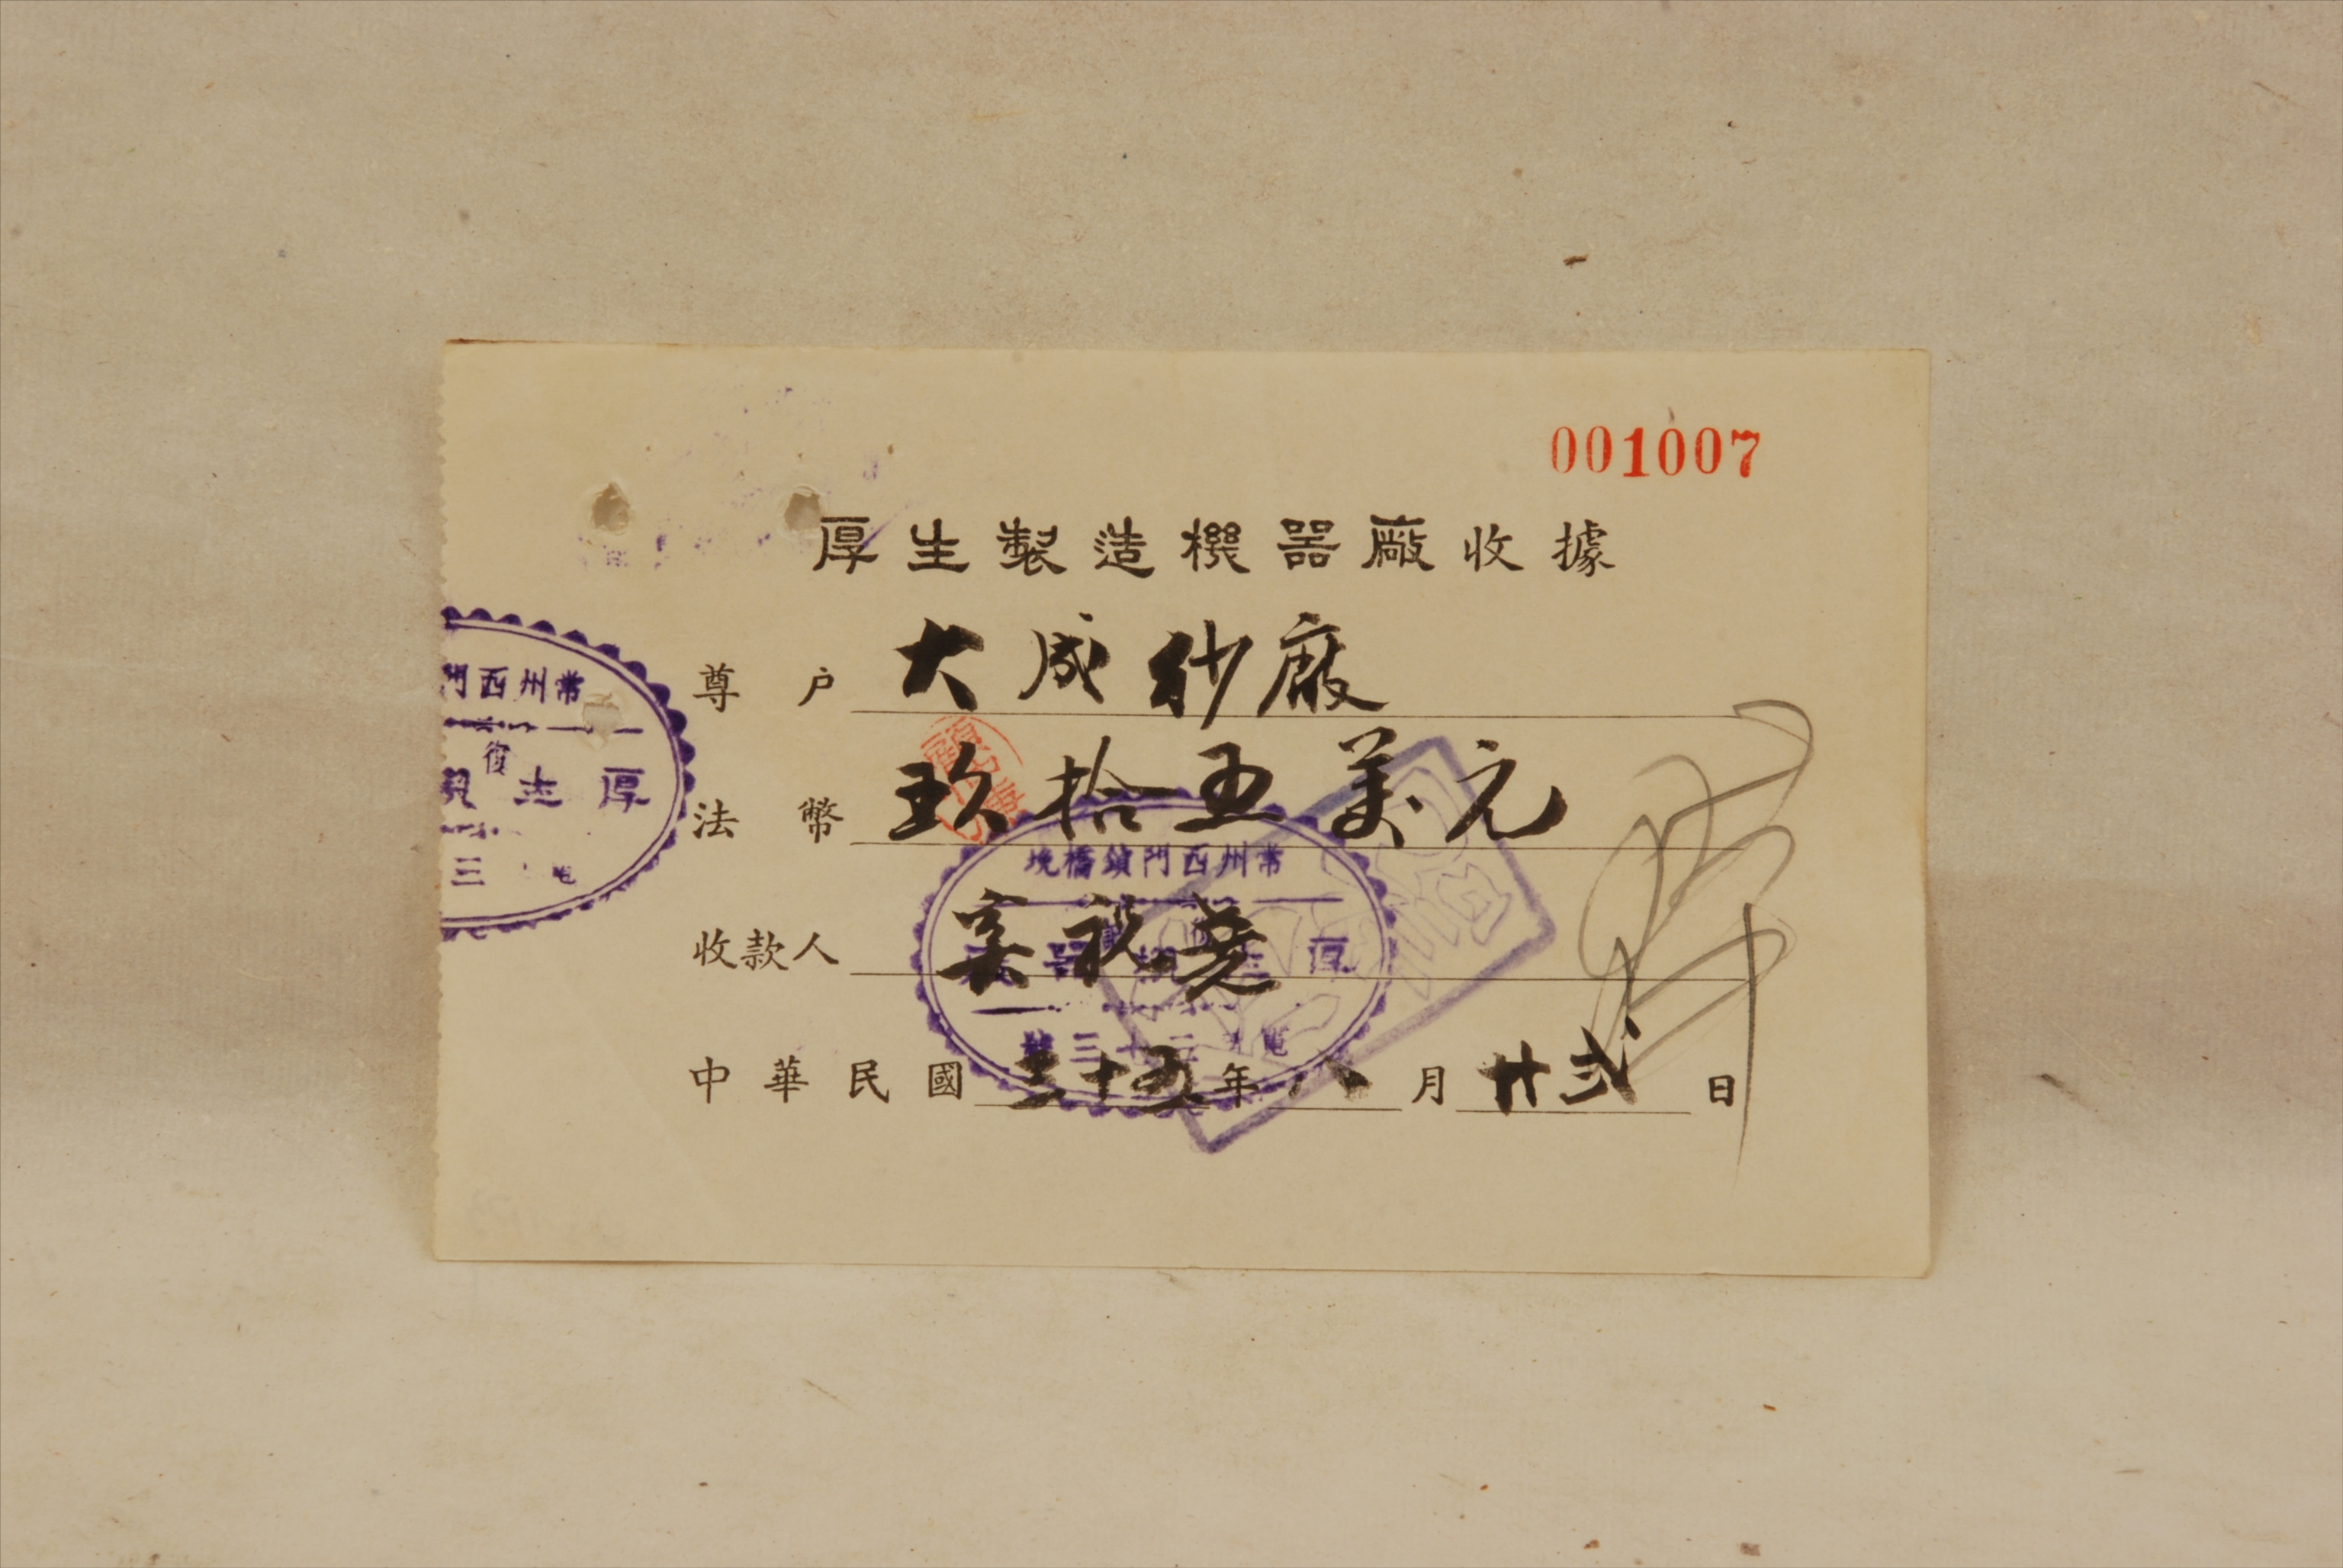 001007
厚生製造機器廠收據
尊户 大成紗廠
法幣 玖拾五萬元
收款人
中華民國三十五年八月廿弍日
常州西門
厚生
三
常州西門鎮橋塊
厚生機器